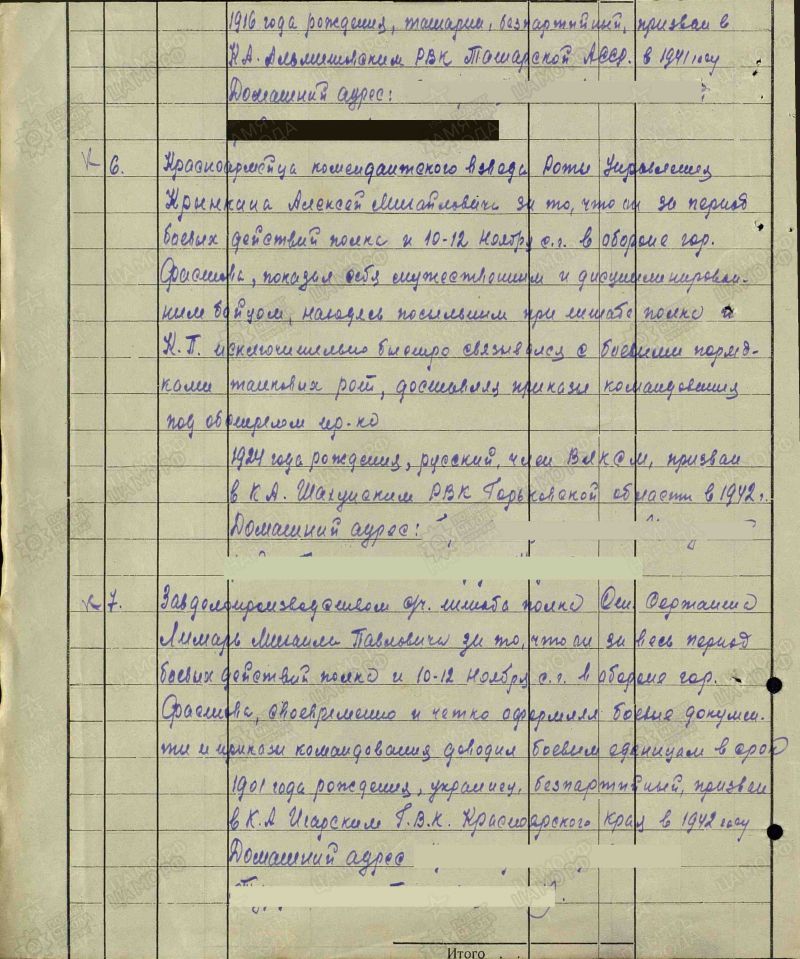 1916 года рождения, татарин, безпартийный, призван в
К.А. РВК Татарской АССР. в 1941 году
Домашний адрес:
6. Красноармейца комендантского взвода Роты Управления
Крынкина Алексей Михайловича за то, что он за период
боевых действий полка и 10-12 Ноября с.г. в обороне гор.
Фастова, показал себя мужественным и дисциплинирован-
ным бойцом, находясь посыльным при штабе полка и
К.П. исключительно быстро связывался с боевыми поряд-
ками танковых рот, доставляя приказы командования
под обстрелом пр-ка
1924 года рождения, русский, член ВЛКСМ, призван
в К.А. Шахунским РВК Горьковской области в 1942 г.
Домашний адрес:
7. Завделопроизводством с/ч. штаба полка Ст. Сержанта
Лимарь Михаила Павловича за то, что он за весь период
боевых действий полка и 10-12 Ноября с.г. в обороне гор.
Фастова, своевременно и четко оформлял боевые докумен-
ты и приказы командования доводил боевым единицам в срок
1901 года рождения, украинец, безпартийный, призван
в К.А Игарским Г.В.К. Красноярского края в 1942 году
Домашний адрес
Итого